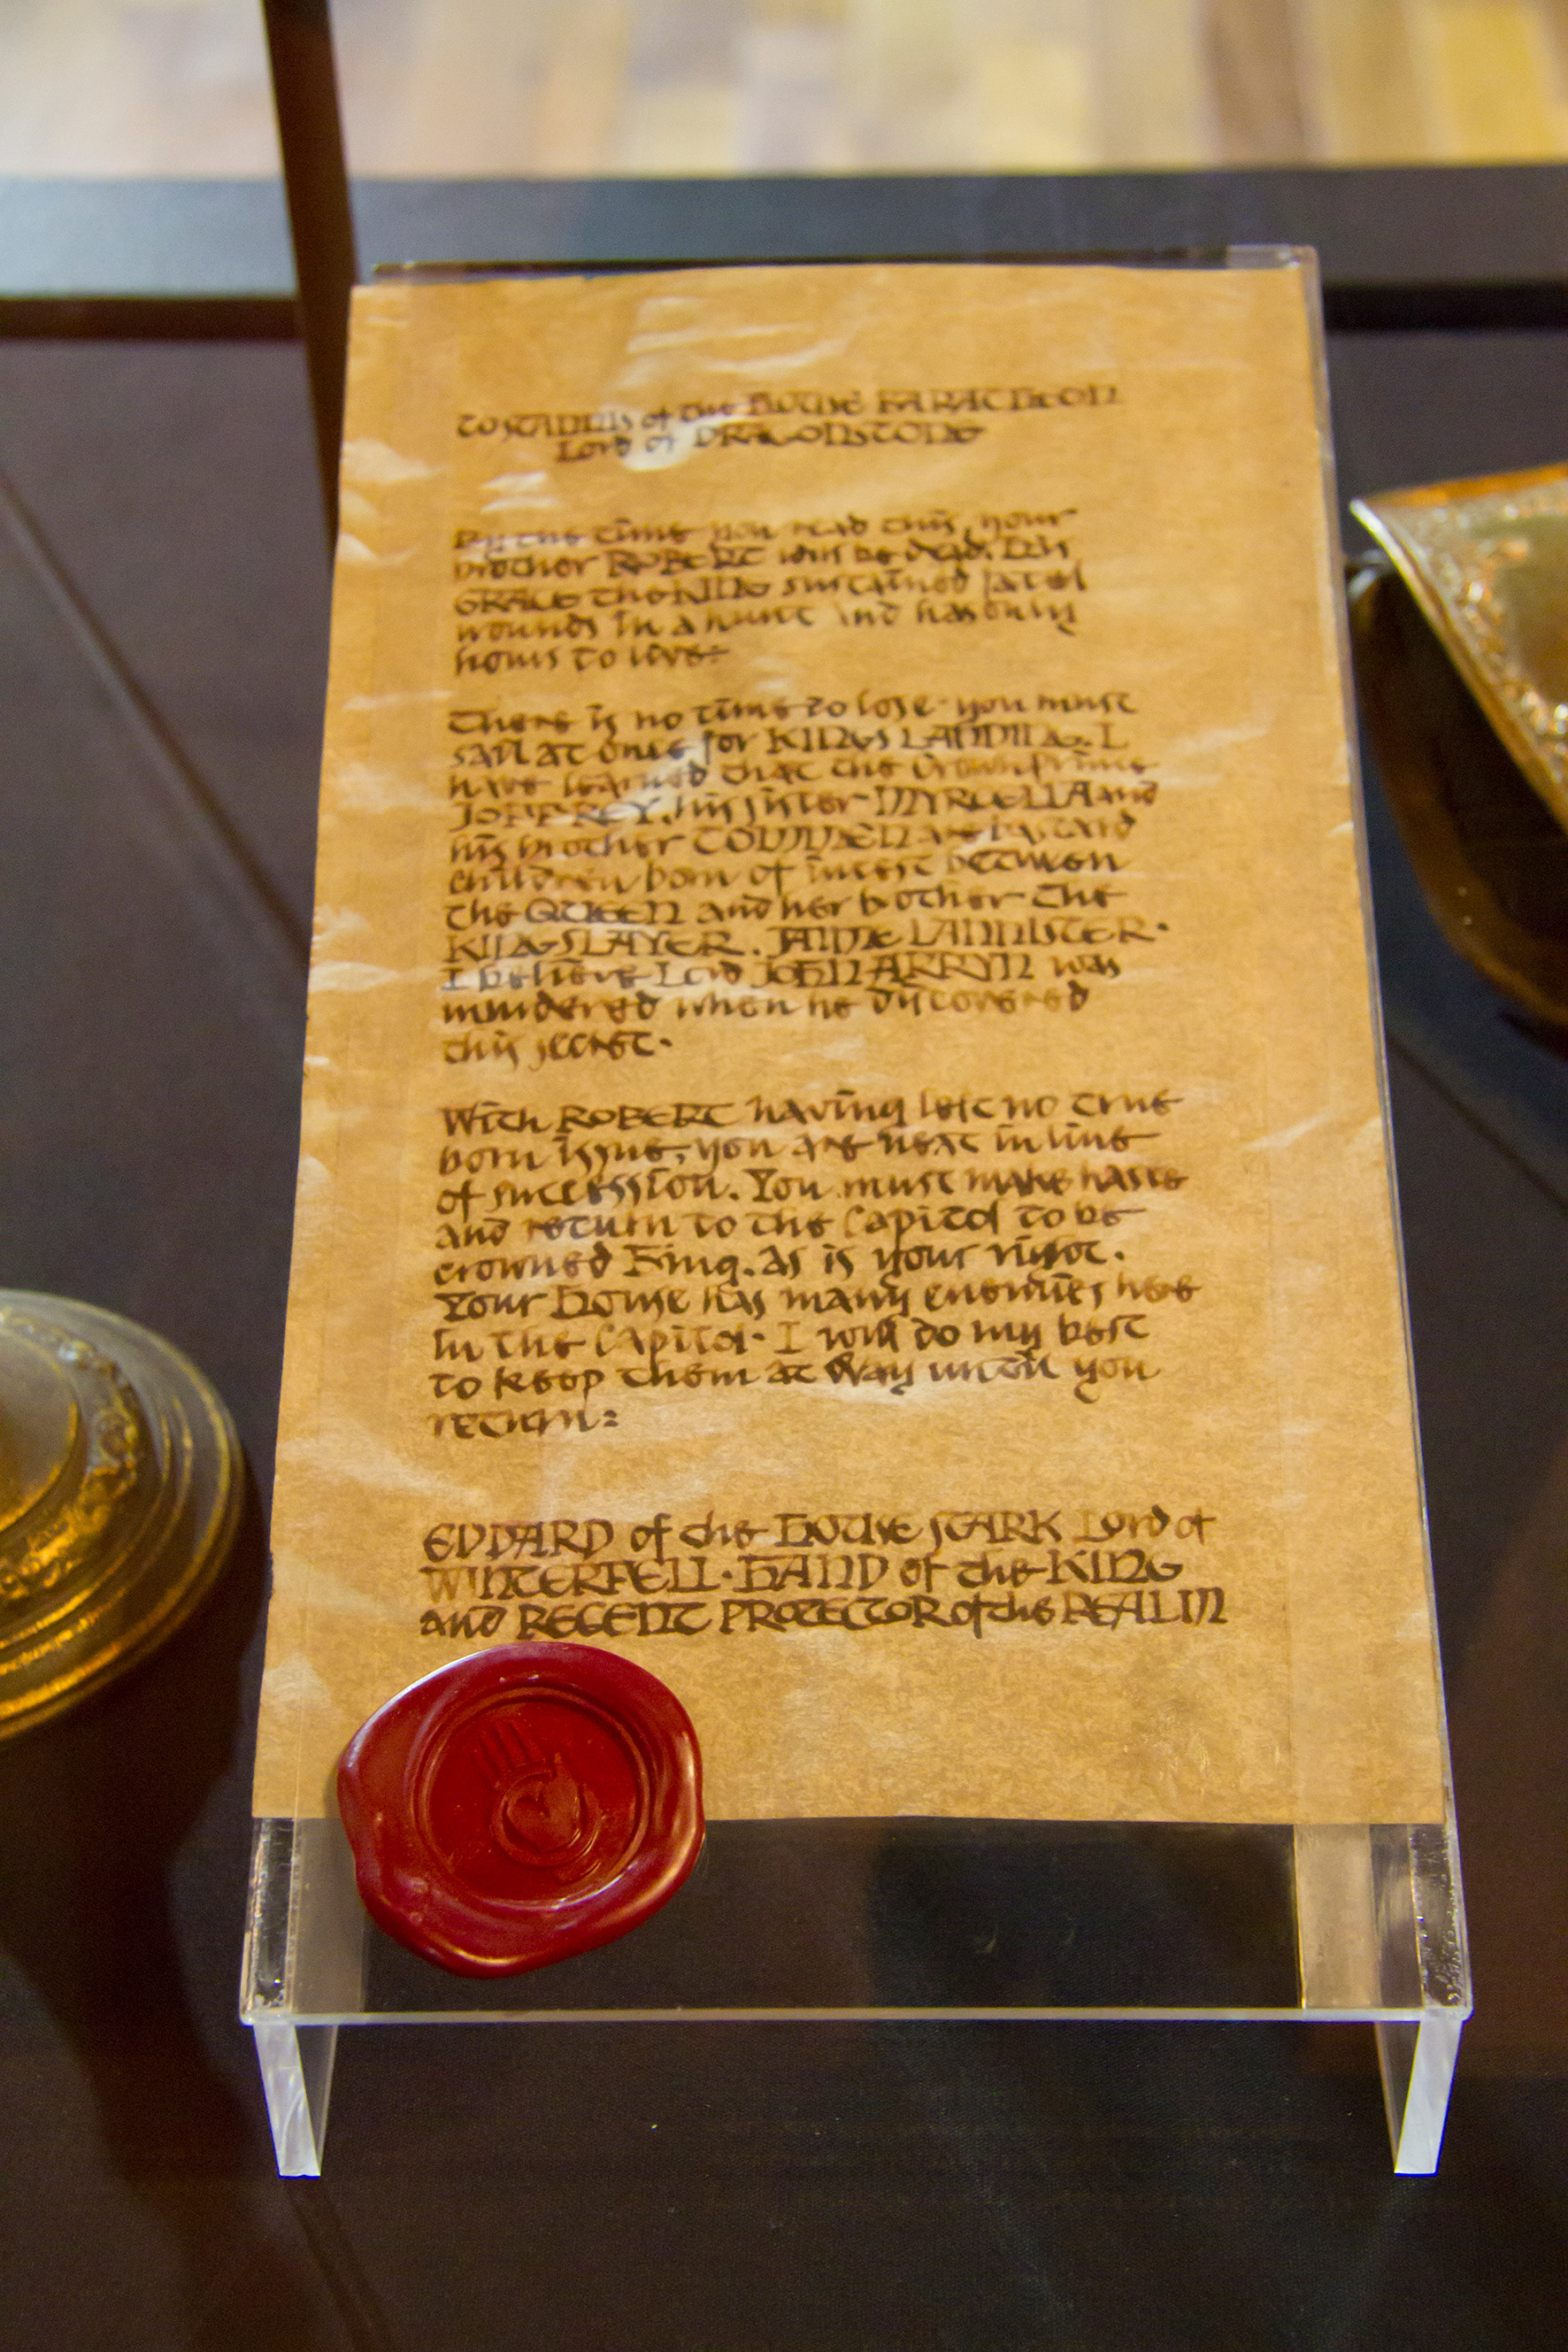 TO STANNIS of the HOUSE BARATHEON
Lord of DRAGONSTONE
By the time you read this, your
brother ROBERT will be dead. His
GRACE the KING sustained fatal
wounds in a hunt and has only
hours to live.
There is no time to lose. you must
sail at once for KINGS LANDING. I
have learned that the Crown Prince
JOFFREY, his sister MYRCELLA and
his brother TOMMEN are bastard
children born of incest between
the QUEEN and her brother the
KINGSLAYER. JAIME LANNISTER.
I believe Lord JOHN ARRYN was
murdered when he discovered
this secret.
With ROBERT having left no true
born issue, you are next in line
of succession. You must make haste
and return to the Capitol to be
crowned King. As is your right.
Your House has many enemies here
in the Capitol. I will do my best
to keep them at Bay until you
return:
EDDARD of the HOUSE STARK Lord of
WINTERFELL. HAND of the KING
and REGENT PROTECTOR of the REALM